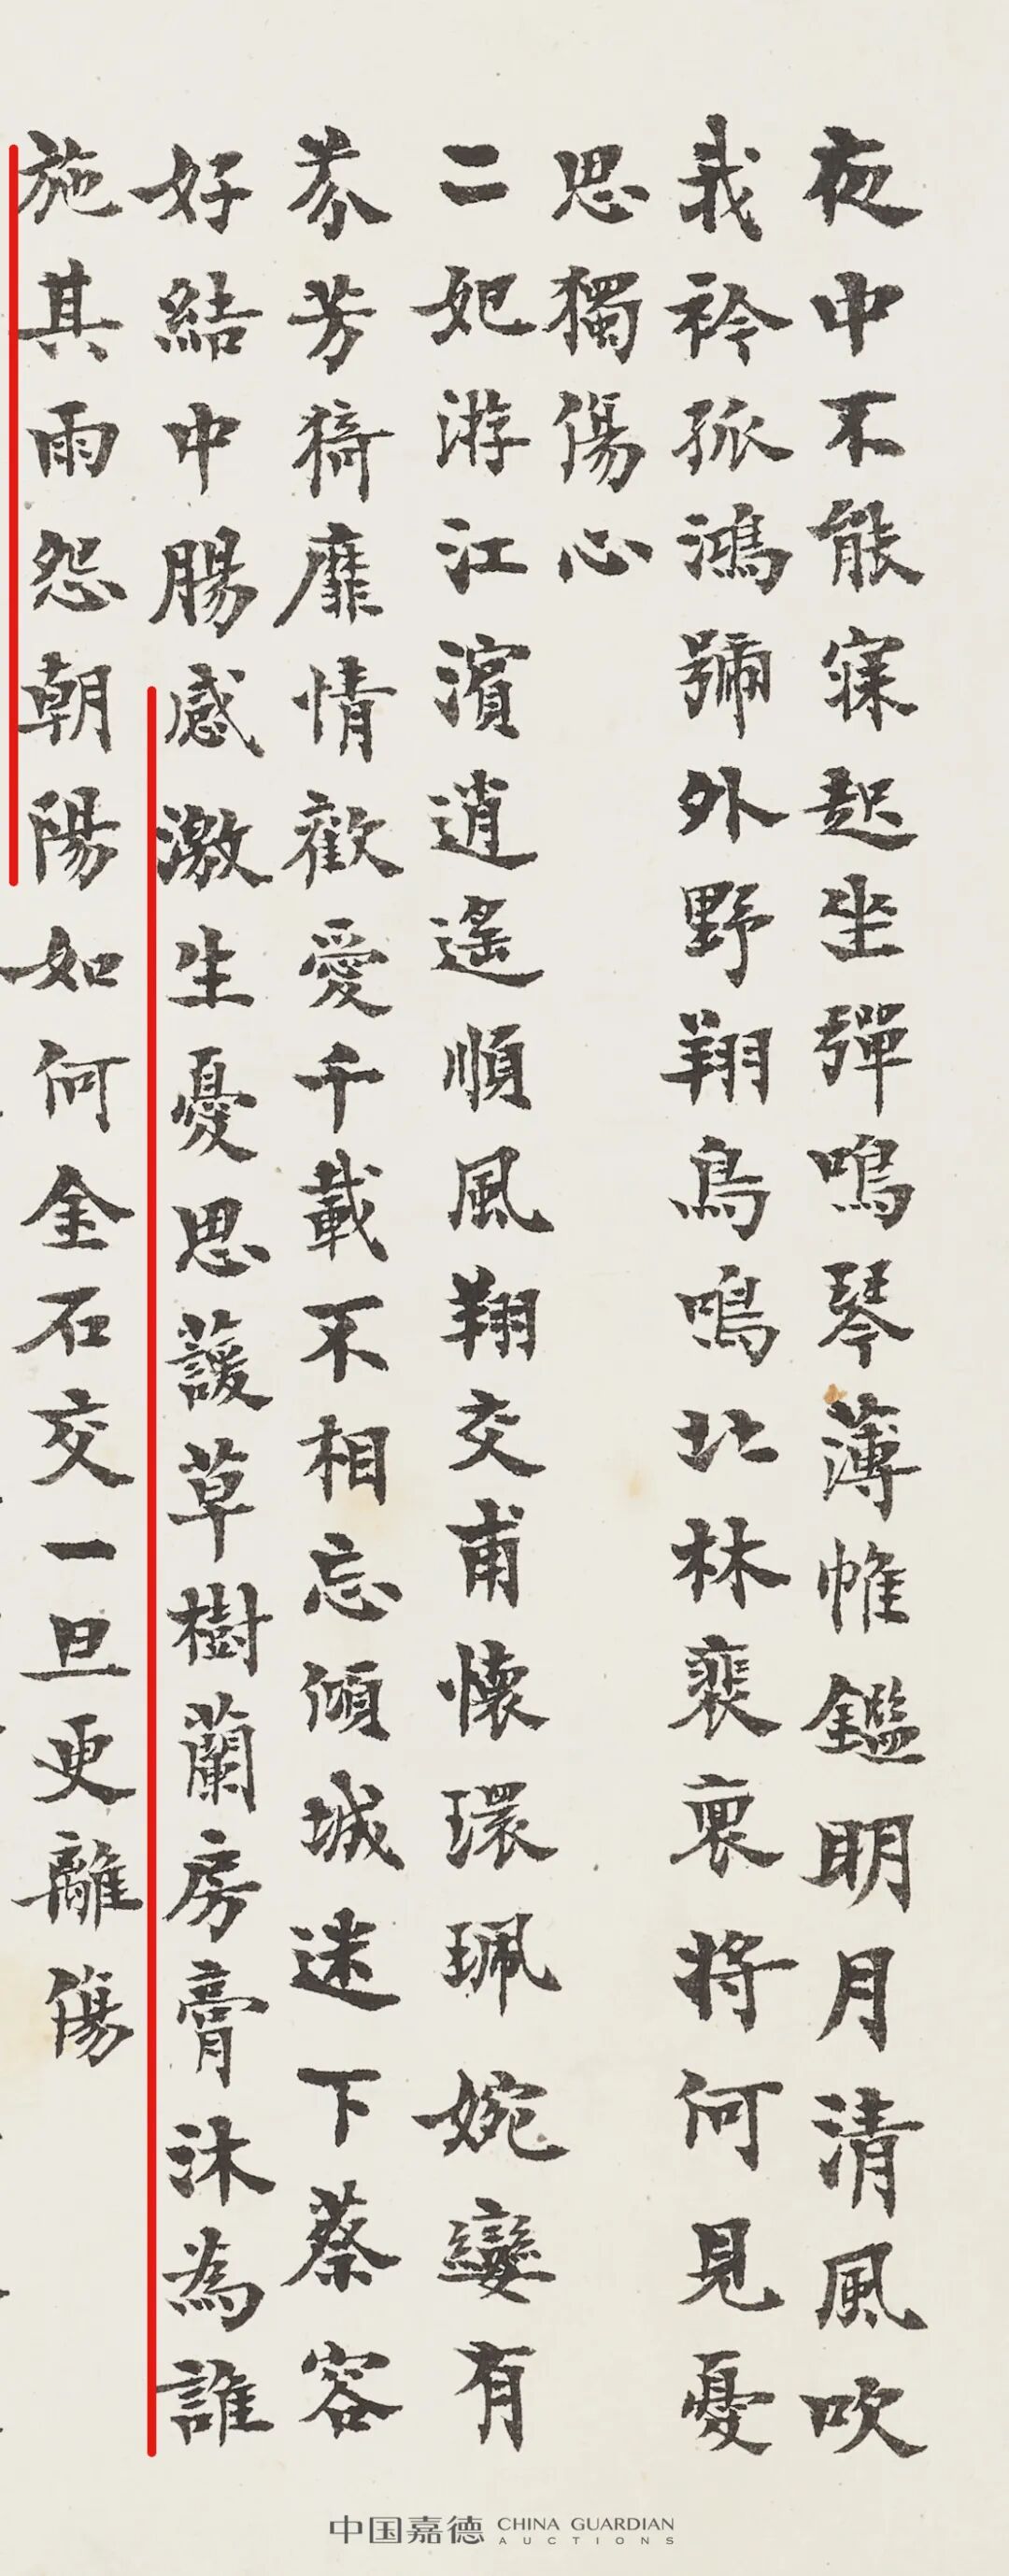 夜中不能寐起坐彈鳴琴薄帷鑑明月清風吹
我衿孤鴻號外野翔鳥鳴北林裴裵將何見憂
思獨傷心
二妃游江濱逍遙順風翔交甫懷環珮婉孌有
芬芳猗靡情歡愛千載不相忘傾城迷下蔡容
好結中腸感激生憂思諼草樹蘭房膏沐為誰
施其雨怨朝陽如何金石交一旦更離傷
中国嘉德 CHINA GUARDIAN
AUCTIONS